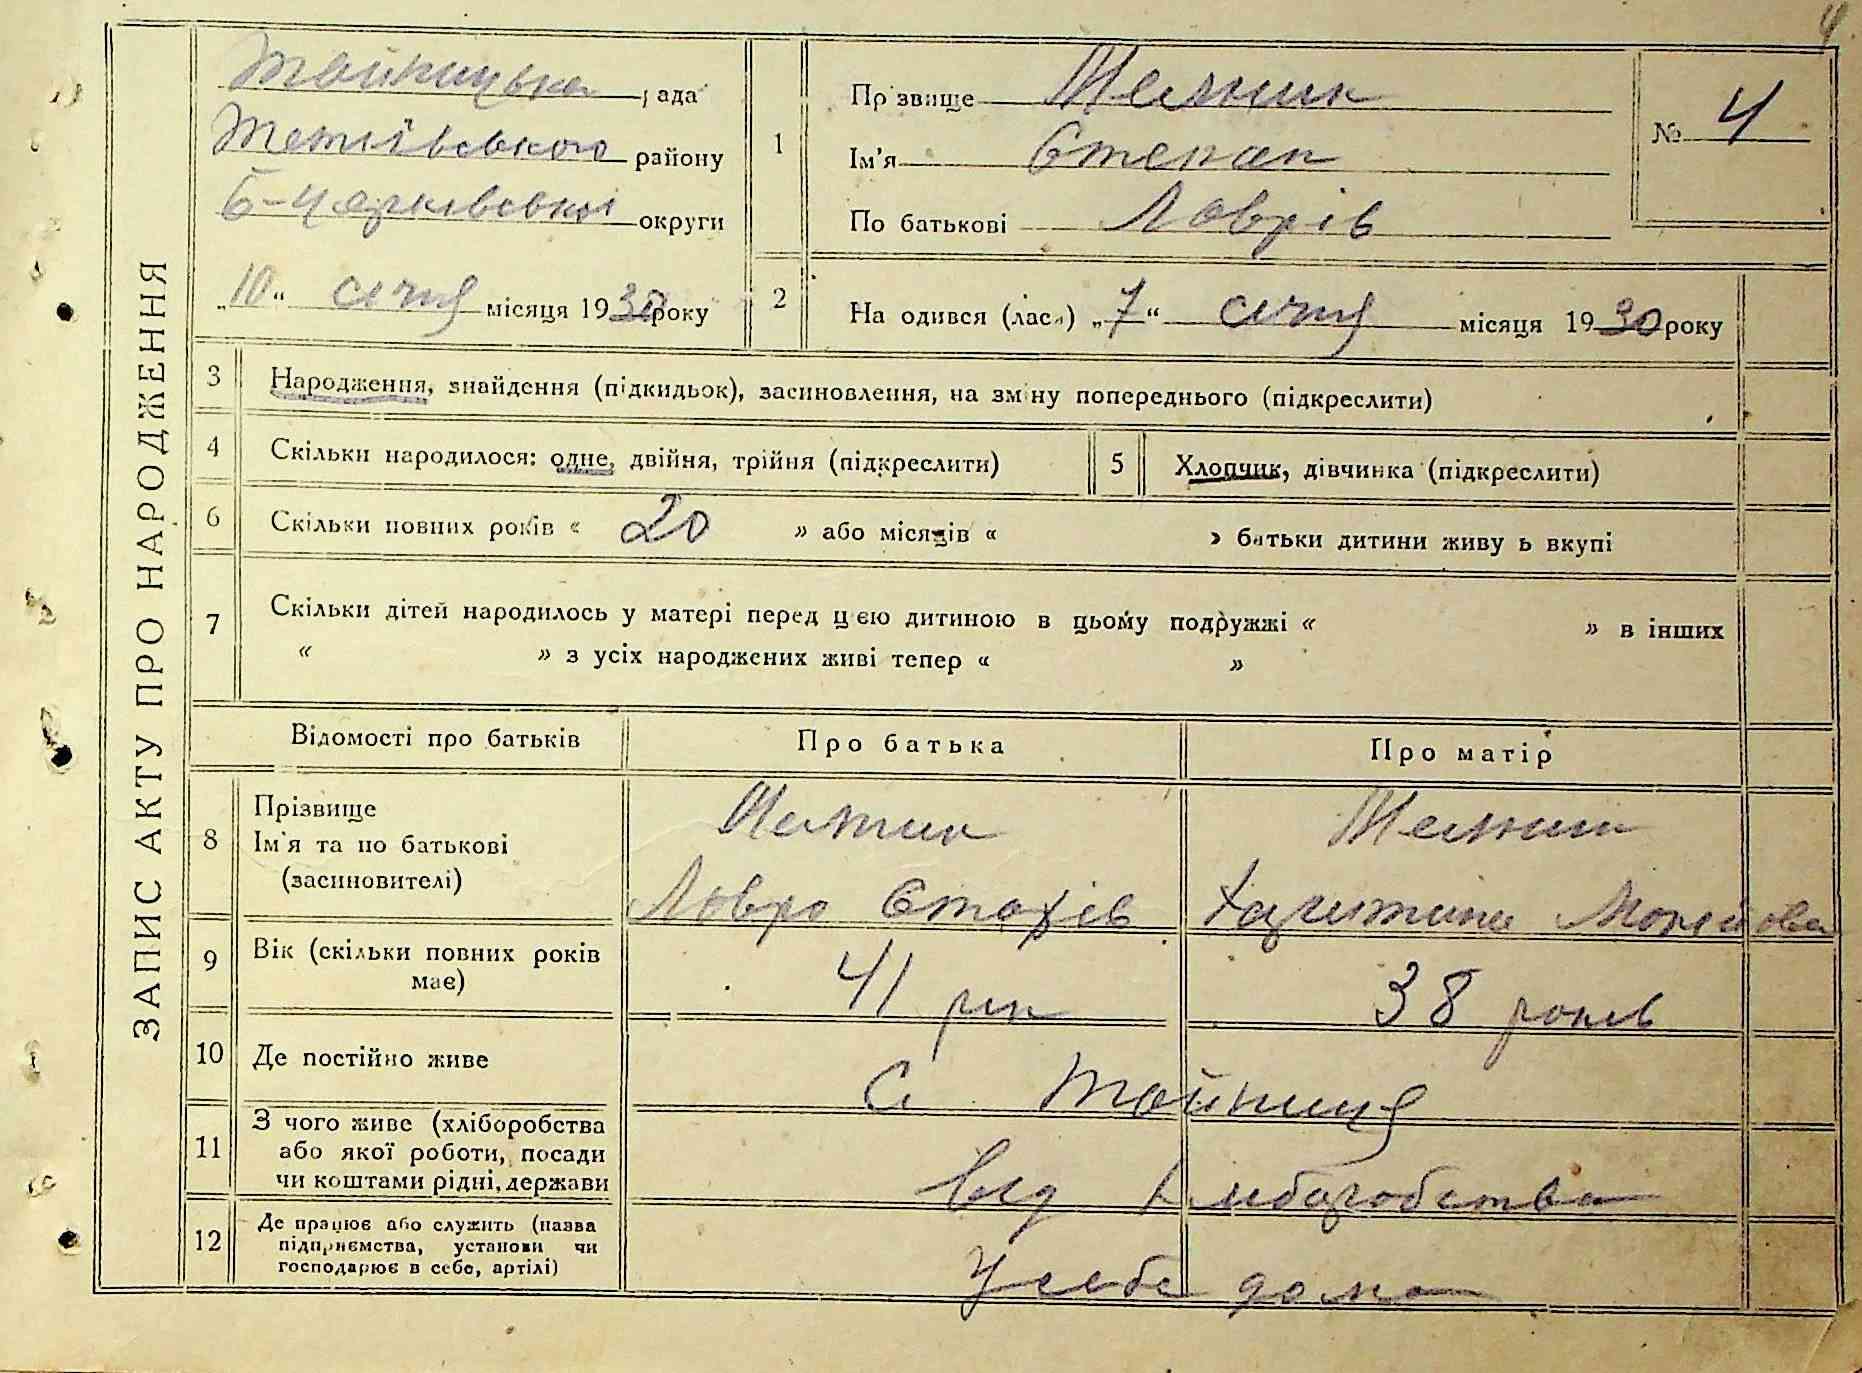 4
ЗАПИС АКТУ ПРО НАРОДЖЕННЯ
Тайницька рада
Тетіївського району
Б-Церківської округи
„10“ січня місяця 1930 року
1
Прізвище Мельник
Ім'я Степан
По батькові Лаврів
№ 4
2
Народився (лась) „7“ січня місяця 1930 року
3 Народження, знайдення (підкидьок), засиновлення, на зміну попереднього (підкреслити)
4 Скільки народилося: одне, двійня, трійня (підкреслити)
5 Хлопчик, дівчинка (підкреслити)
6 Скільки повних років « 20 » або місяців « » батьки дитини живуть вкупі
7 Скільки дітей народилось у матері перед цією дитиною в цьому подружжі « » в інших
« » з усіх народжених живі тепер « »
Відомості про батьків Про батька Про матір
8 Прізвище
Ім'я та по батькові
(засиновителі)
Мельник
Лавро Стахів
Мельник
Харитина
9 Вік (скільки повних років
має)
41 рік
38 років
10 Де постійно живе
С Тайниця
11 З чого живе (хліборобства
або якої роботи, посади
чи коштами рідні, держави
від хліборобства
12 Де працює або служить (назва
підприємства, установи чи
господарює в себе, артілі)
У себе дома